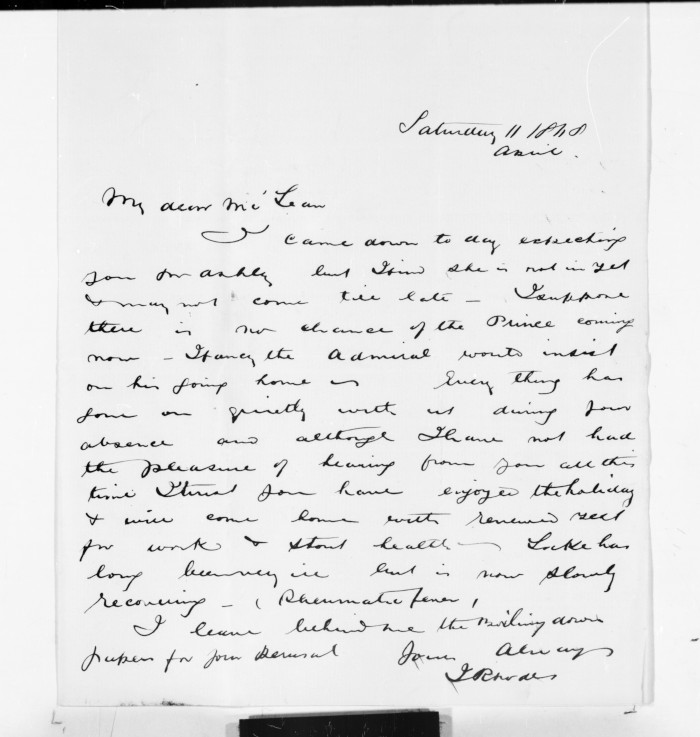 Saturday 11 1868
April.
My dear McLean
I came down to day expecting
you per Ashley but I find she is not in yet
& may not come till late - I suppose
there is no chance of the Prince coming
now - I fancy the Admiral wonts insist
on his going home - Every thing has
gone on quietly with us during your
absence and although I have not had
the pleasure of hearing from you all this
time I trust you have enjoyed the holiday
& will come home with renewed zest
for work & stout health - Locke has
long been very ill but is now slowly
recovering - (Rheumatic fever)
I leave behind me the Boiling down
papers for your perusal Yours Always
J Rhodes